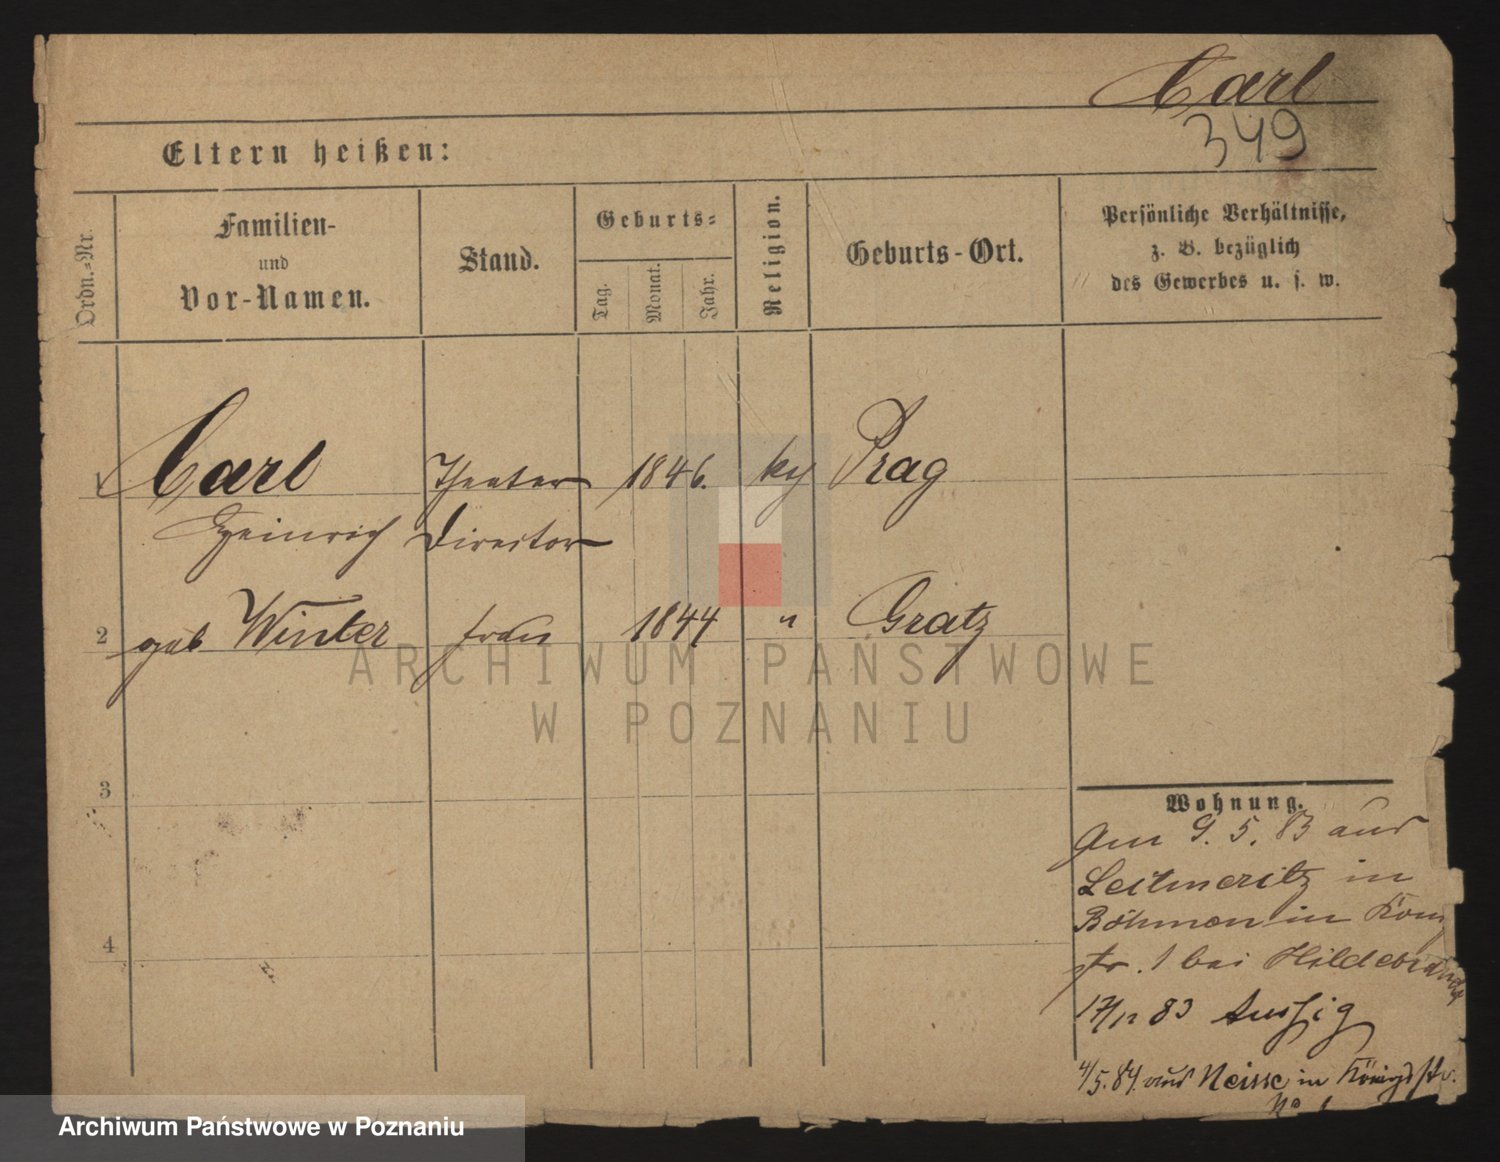 Carl
349
Eltern heißen:
Ordn.-Nr.
Familien-
und
Vor-Namen.
Stand.
Geburts-
Tag.
Monat.
Jahr.
Religion.
Geburts-Ort.
Persönliche Verhältnisse,
z. B. bezüglich
des Gewerbes u. s. w.
1 Carl Theater 1846. Prag
Heinrich Director
2 geb Winter frau 1844 " Gratz
ARCHIWUM PAŃSTWOWE
W POZNANIU
3
Wohnung.
Am 9. 5. 83 aus
Leitmeritz in
Böhmen in
str. 1 bei Hildebrandt
4
83 Aussig
4/5. 84. aus Neisse in Königstr.
Archiwum Państwowe w Poznaniu